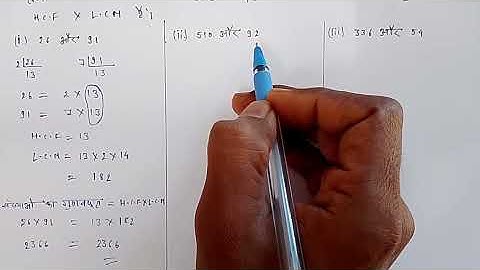 H.C.F X L.C.M है।
(i) 26 और 91
2 | 26
13
7 | 91
13
26 = 2 × 13
91 = 7 × 13
H.C.F = 13
L.C.M = 13 × 2 × 14
= 182
संख्याओं का गुणनफल = H.C.F X L.C.M
26 × 91 = 13 × 182
2366 = 2366
(ii) 510 और 92
(iii) 336 और 54